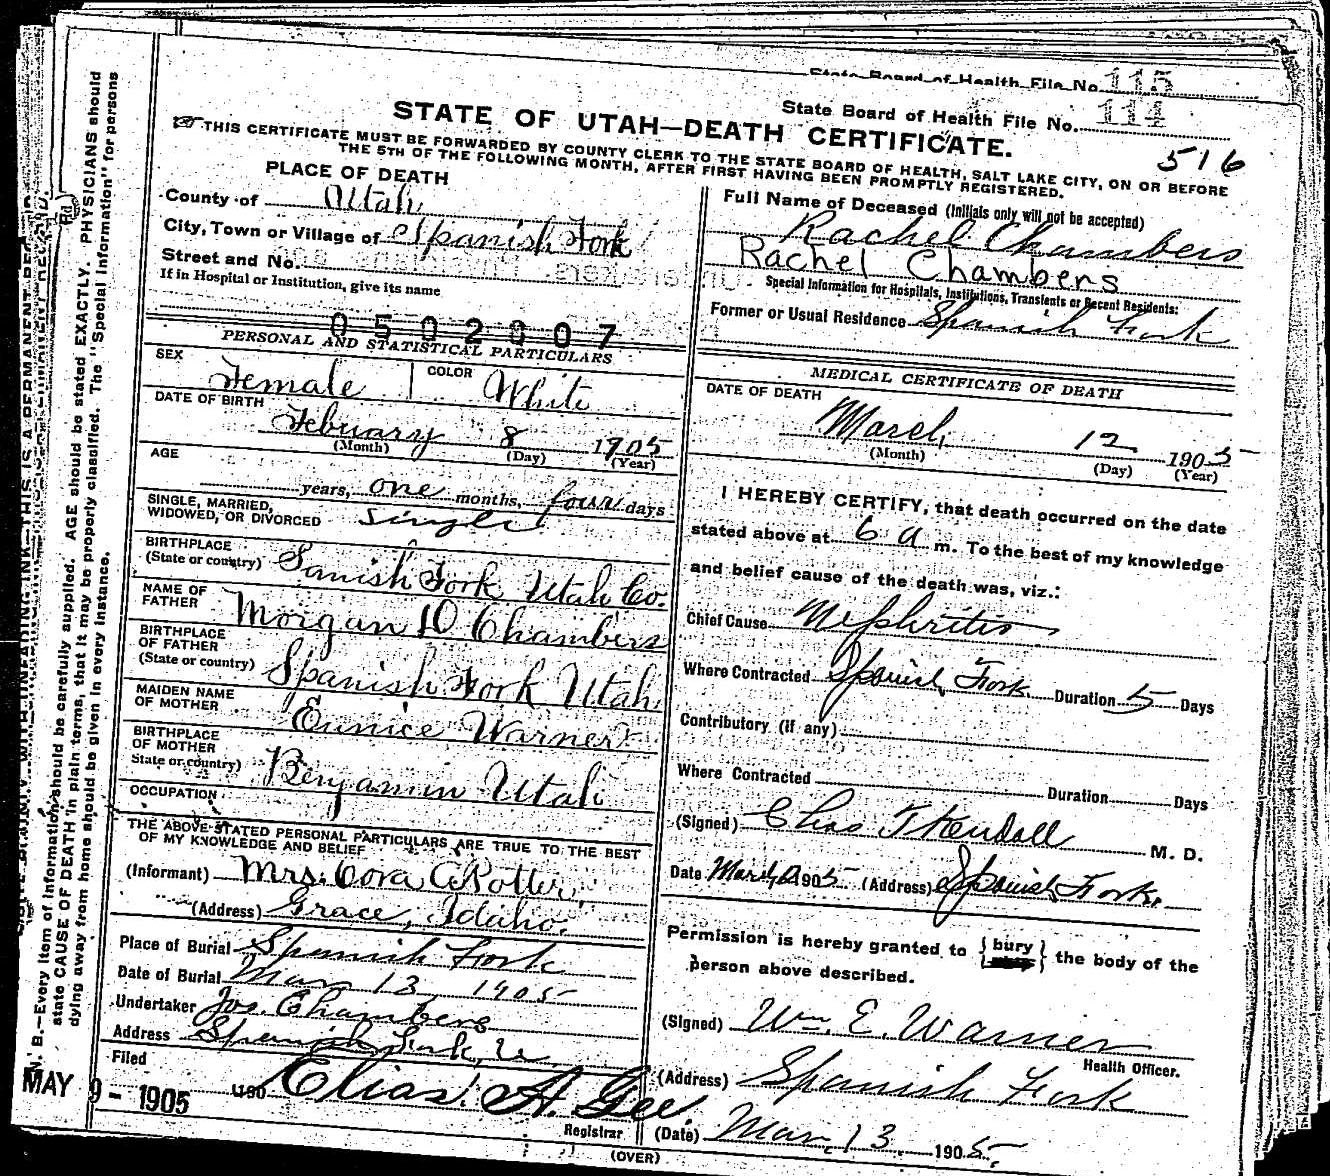 State Board of Health File No. 115
State Board of Health File No. 114
STATE OF UTAH—DEATH CERTIFICATE.
516
THIS CERTIFICATE MUST BE FORWARDED BY COUNTY CLERK TO THE STATE BOARD OF HEALTH, SALT LAKE CITY, ON OR BEFORE
THE 5TH OF THE FOLLOWING MONTH, AFTER FIRST HAVING BEEN PROMPTLY REGISTERED.
PLACE OF DEATH
County of Utah
City, Town or Village of Spanish Fork
Street and No.
If in Hospital or Institution, give its name
0502007
PERSONAL AND STATISTICAL PARTICULARS
SEX Female COLOR White
DATE OF BIRTH
Febuary 8 1905
(Month) (Day) (Year)
AGE
years, one months, four days
SINGLE, MARRIED,
WIDOWED, OR DIVORCED single
BIRTHPLACE
(State or country) Sanish Fork Utah Co.
NAME OF
FATHER Morgan D Chambers
BIRTHPLACE
OF FATHER
(State or country) Spanish Fork Utah
MAIDEN NAME
OF MOTHER Eunice Warner
BIRTHPLACE
OF MOTHER
State or country) Benjamin Utah
OCCUPATION
THE ABOVE STATED PERSONAL PARTICULARS ARE TRUE TO THE BEST
OF MY KNOWLEDGE AND BELIEF
(Informant) Mrs. Cora A Potter
(Address) Grace, Idaho.
Place of Burial Spanish Fork
Date of Burial Mar 13 1905
Undertaker Jos. Chambers
Address Spanish Fork, U
Filed
MAY 9 - 1905 190 Elias A. Gee
Registrar
(OVER)
Full Name of Deceased (Initials only will not be accepted)
Rachel Chambers
Rachel Chambers
Special Information for Hospitals, Institutions, Transients or Recent Residents:
Former or Usual Residence Spanish Fork
MEDICAL CERTIFICATE OF DEATH
DATE OF DEATH
March 12 1905
(Month) (Day) (Year)
I HEREBY CERTIFY, that death occurred on the date
stated above at 6 a m. To the best of my knowledge
and belief cause of the death was, viz.:
Chief Cause Nephritis
Where Contracted Spanish Fork Duration 5 Days
Contributory (if any)
Where Contracted Duration Days
(Signed) Chas T Kendall M. D.
Date March 1905 (Address) Spanish Fork.
Permission is hereby granted to {bury} the body of the
person above described.
(Signed) Wm. E. Warner
Health Officer.
(Address) Spanish Fork
(Date) Mar, 13. 1905.
N. B.—Every item of information should be carefully supplied. AGE should be stated EXACTLY. PHYSICIANS should
state CAUSE OF DEATH in plain terms, that it may be properly classified. The "Special Information" for persons
dying away from home should be given in every instance.